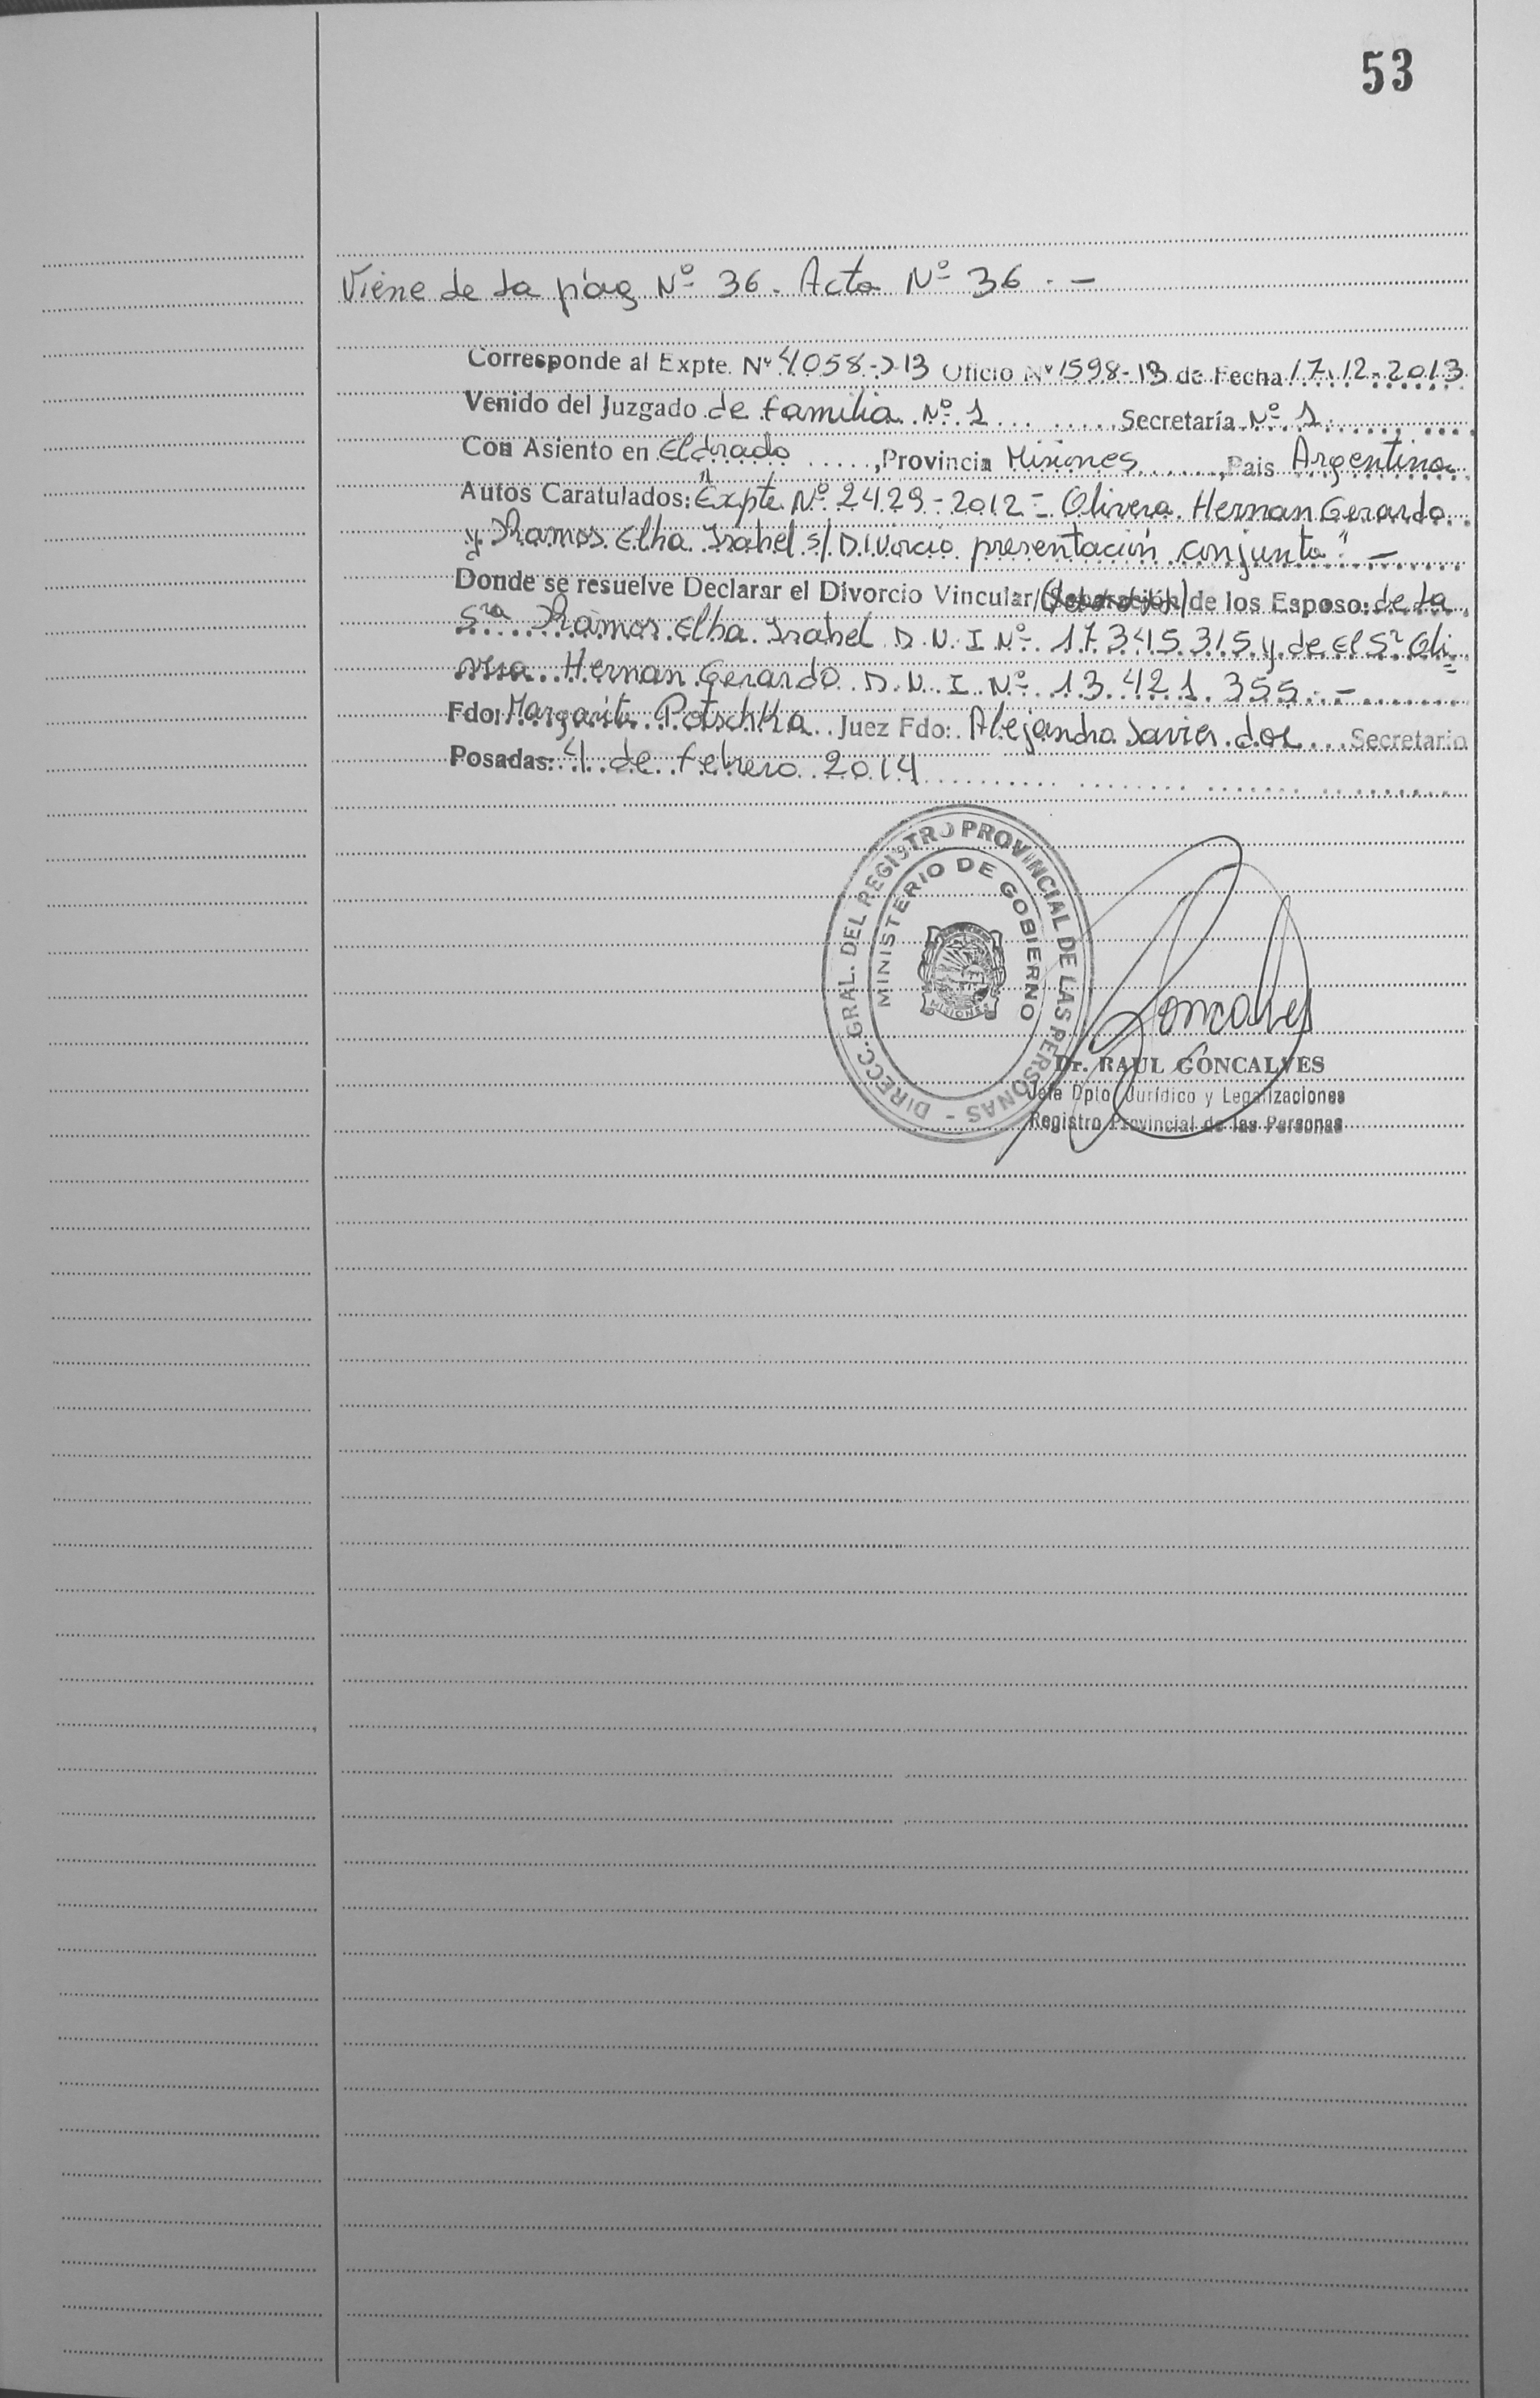 53
Viene de la pág Nº 36. Acta Nº 36 . -
Corresponde al Expte. Nº 4058-J-13 Oficio Nº 1598-13 de Fecha 17.12-2013
Venido del Juzgado de familia Nº 1 Secretaría Nº 1
Con Asiento en Eldorado , Provincia Misiones , Pais Argentina
Autos Caratulados: "Expte Nº 2429-2012 = Olivera Hernan Gerardo
y Ramos Elba Isabel s/ Divorcio presentación conjunta" -
Donde se resuelve Declarar el Divorcio Vincular/(Separación) de los Esposo: de la
Sra Ramos Elba Isabel D.N.I Nº 17.345.315 y de El Sr Oli=
vera Hernan Gerardo D.N.I Nº 13.421.355.-
Fdo: Margarita Potschka Juez Fdo: Alejandra Javier Secretario
Posadas: 4 de febrero 2014
DIRECC. GRAL. DEL REGISTRO PROVINCIAL DE LAS PERSONAS -
MINISTERIO DE GOBIERNO
MISIONES
Goncalves
Dr. RAUL GONCALVES
Jefe Dpto. Jurídico y Legalizaciones
Registro Provincial de las Personas